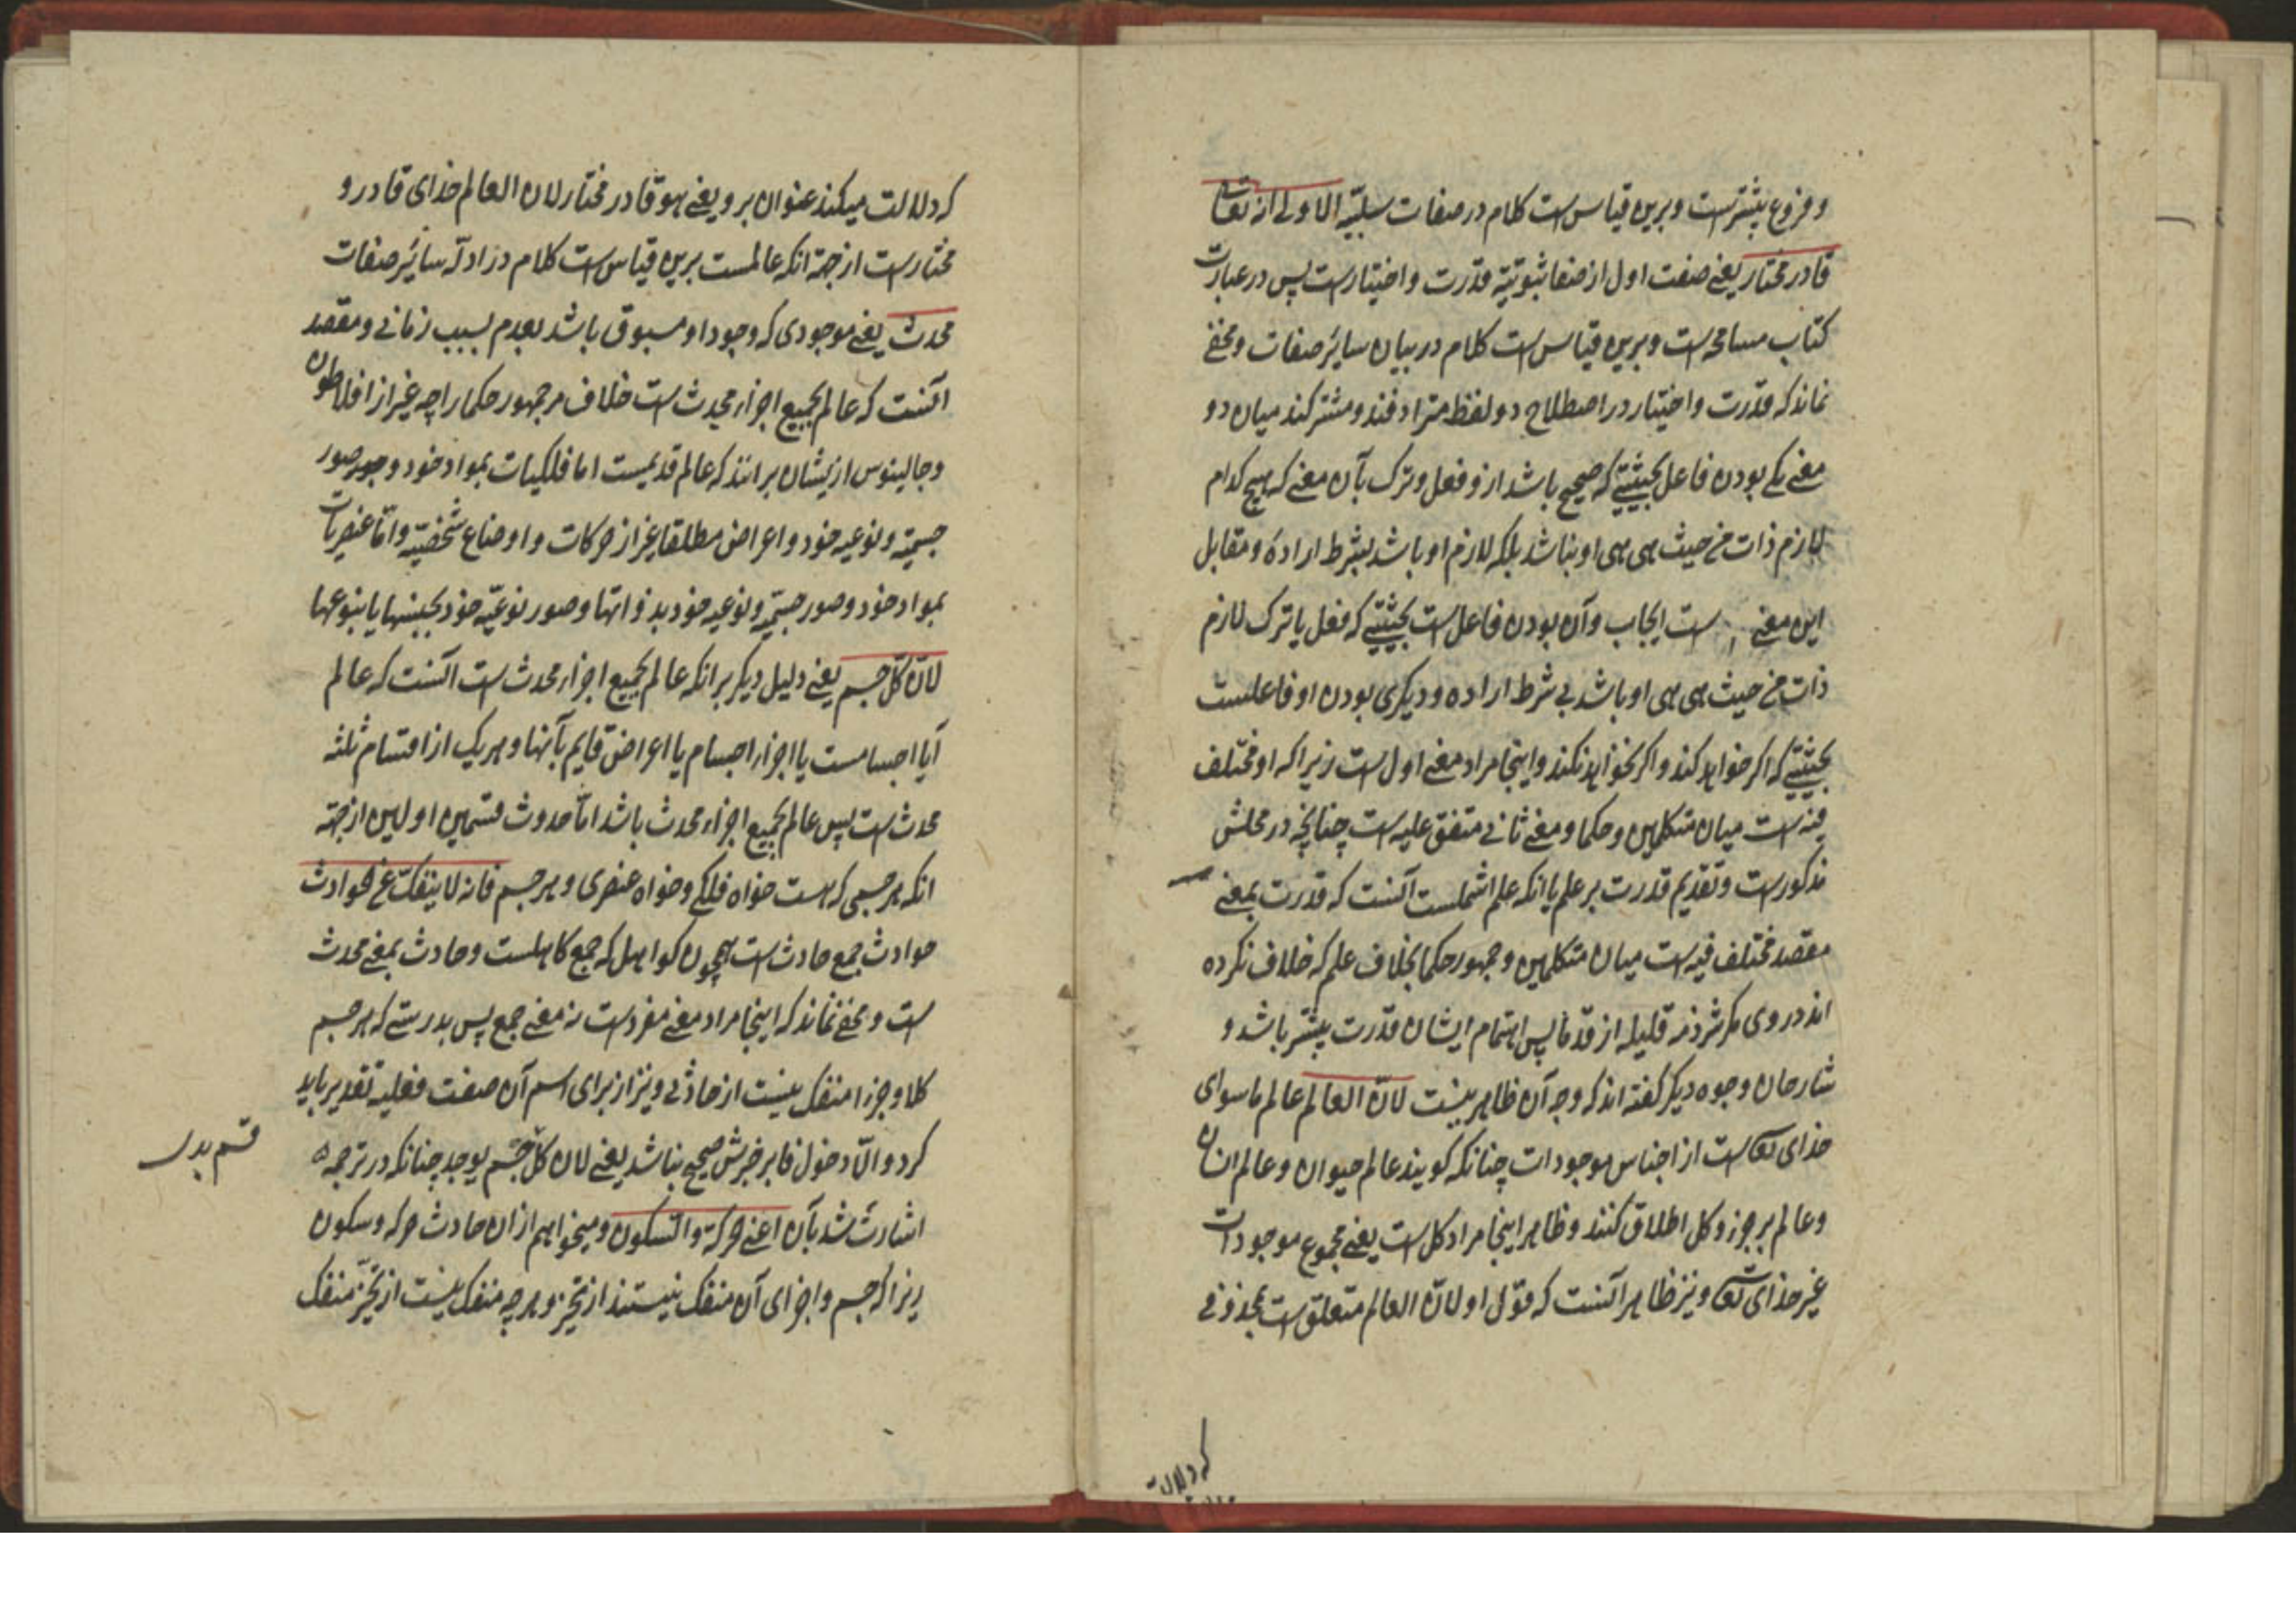 و فروع بیشترست و برین قیاس ست کلام در صفات سلبیّه الاولی انه تعالی
قادر مختار یعنی صفت اول از صفا ثبوتیّه قدرت و اختیارست پس در عبارت
کتاب مسامحه ست و برین قیاس ست کلام در بیان سایر صفات و مخفی
نماند که قدرت و اختیار در اصطلاح دو لفظ مترادفند و مشترکند میان دو
معنی یکی بودن فاعل بحیثیتی که صحیح باشد ازو فعل و ترک بآن معنی که هیچ کدام
لازم ذات من حیث هی هی او نباشد بلکه لازم او باشد بشرط اراده و مقابل
این معنی ست ایجاب و آن بودن فاعل ست بحیثیتی که فعل یا ترک لازم
ذات من حیث هی هی او باشد بی شرط اراده و دیگری بودن او فاعلست
بحیثیتی که اگر خواهد کند و اگر نخواهد نکند و اینجا مراد معنی اول ست زیرا که او مختلف
فیه ست میان متکلمین و حکما و معنی ثانی متفق علیه ست چنانچه در محلش
مذکورست و تقدیم قدرت بر علم با انکه علم اشملست آنست که قدرت بمعنی
مقصد مختلف فیه ست میان متکلمین و جمهور حکما بخلاف علم که خلاف نکرده
اند در وی مگر شرذمه قلیله از قدما پس اهتمام ایشان قدرت بیشتر باشد و
شارحان وجوه دیگر گفته اند که وجه آن ظاهر نیست لانّ العالم عالم ما سوای
خدای تعالی ست از اجناس موجودات چنانکه گویند عالم حیوان و عالم انسان
و عالم بر جزو و کل اطلاق کنند و ظاهر اینجا مراد کل ست یعنی مجموع موجودات
غیر خدای تعالی و نیز ظاهر آنست که قول او لانّ العالم متعلق ست بمحذوفی
که دلالت
که دلالت میکند عنوان برو یعنی هو قادر مختار لان العالم خدای قادر و
مختارست از جهة انکه عالمست برین قیاس ست کلام در ادلّه سایر صفات
محدث یعنی موجودی که وجود او مسبوق باشد بعدم بسبب زمانی و مقصد
آنست که عالم بجمیع اجزاء محدث ست خلاف مر جمهور حکما را چه غیر از افلاطون
و جالینوس ازیشان برانند که عالم قدیمست اما فلکیات بمواد خود و صور
جسمیّه و نوعیه خود و اعراض مطلقا غیر از حرکات و اوضاع شخصیّه و امّا عنصریات
بمواد خود و صور جسمیّه و نوعیه خود بذواتها و صور نوعیّه خود بجنسها یا بنوعها
لانّ کلّ جسم یعنی دلیل دیگر بر انکه عالم بجمیع اجزاء محدث ست آنست که عالم
آیا اجسامست یا اجزاء اجسام یا اعراض قایم بآنها و هر یک از اقسام ثلثه
محدث ست پس عالم بجمیع اجزاء محدث باشد امّا حدوث قسمین اولین از جهة
انکه هر جسمی که هست خواه فلکی و خواه عنصری و هر جسم فانه لا ینفکّ عن الحوادث
حوادث جمع حادث ست همچون کواهل که جمع کاهلست و حادث بمعنی محدث
ست و مخفی نماند که اینجا مراد معنی مفردست نه معنی جمع پس بدرستی که هر جسم
کلا و جزءا منفک نیست از حادثی و نیز از برای اسم آن صفت فعلیه تقدیر باید
کرد و الّا دخول فا بر خبرش صحیح نباشد یعنی لان کلّ جسم یوجد چنانکه در ترجمه
اشارت شد بآن اعنی الحرکة و السکون و میخواهم ازان حادث حرکه و سکون
زیرا که جسم و اجزای آن منفک نیستند از تحیّز و هر چه منفک نیست از تحیّز منفک
قسم بدر